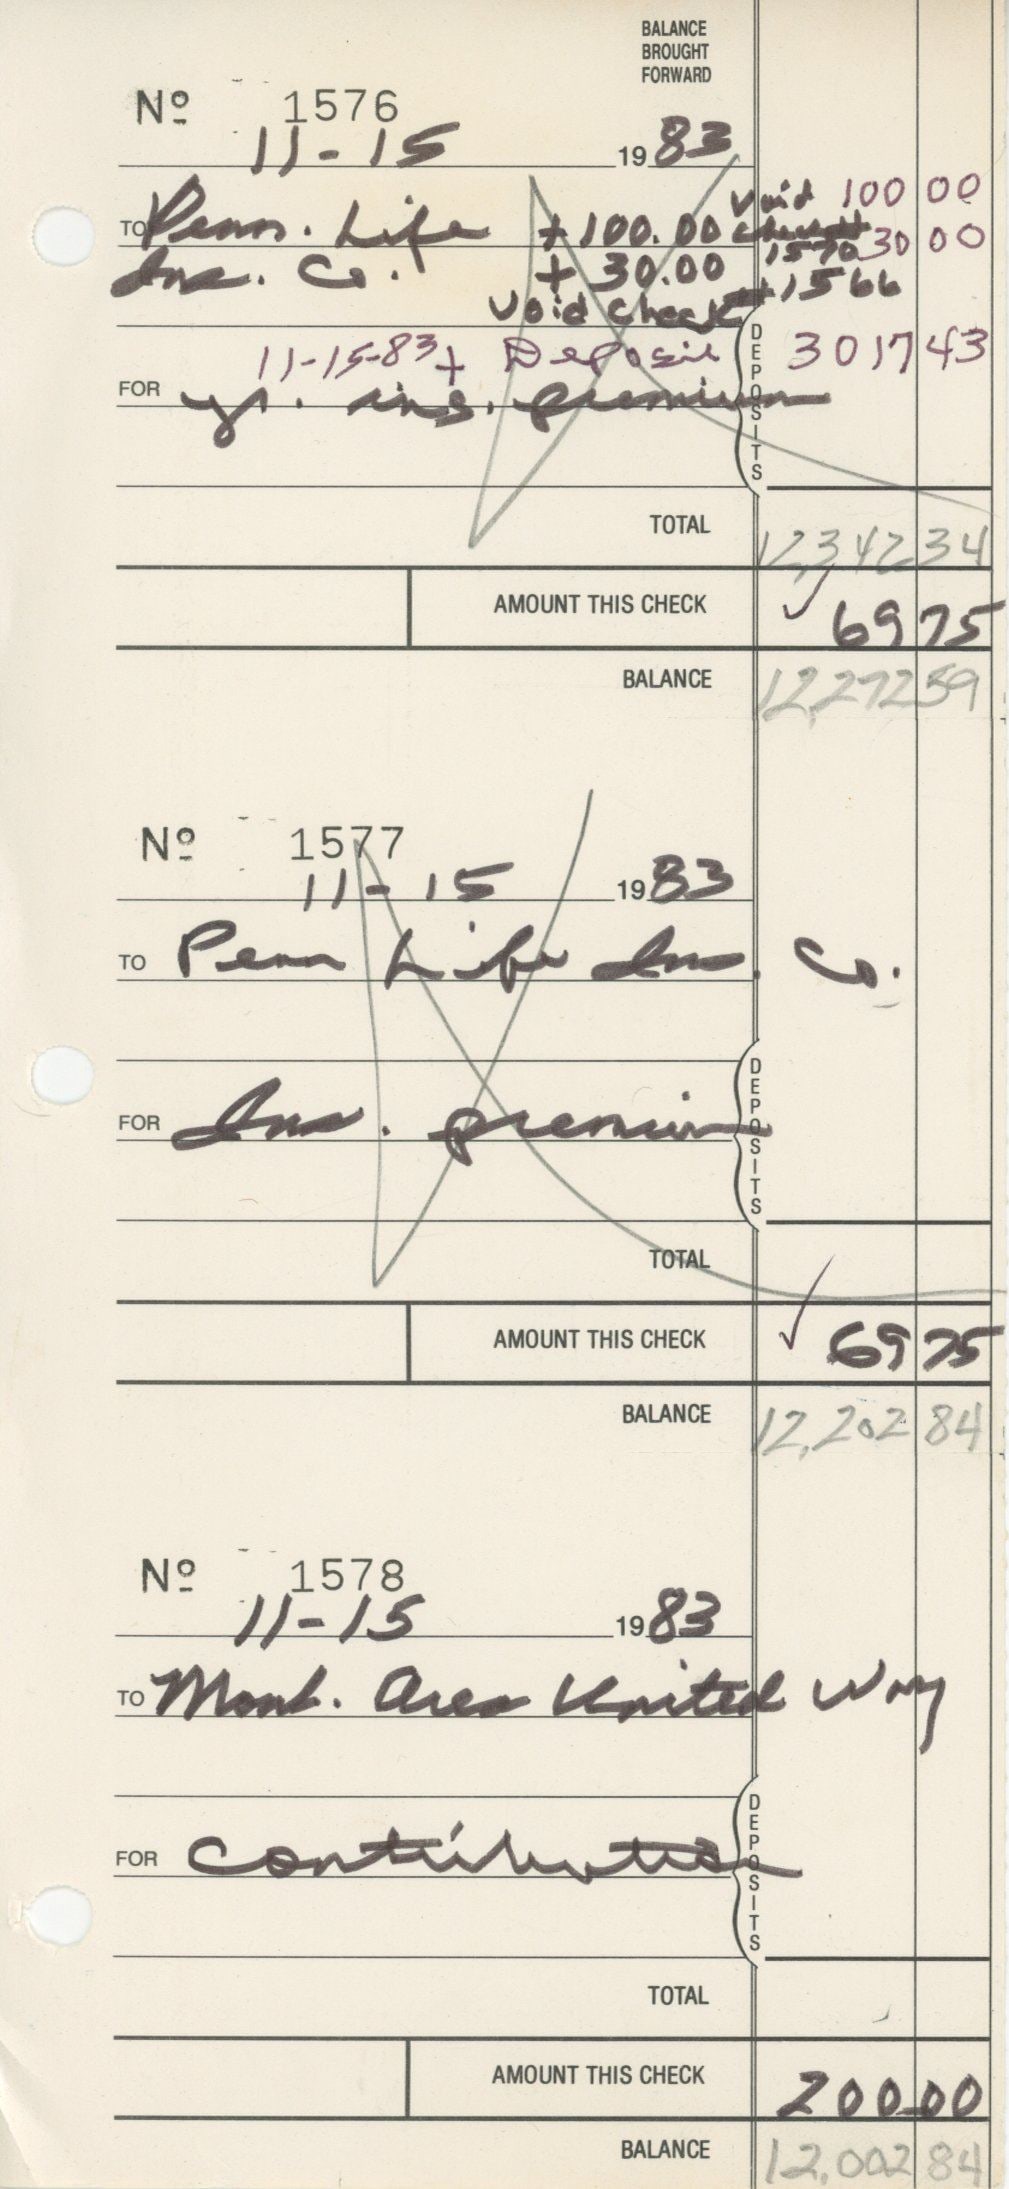 BALANCE
BROUGHT
FORWARD
Nº 1576
11-15 1983
Void 100 00
TO Penn. Life +100.00 check# 1570 30 00
Ins. Co. +30.00 #1566
Void check
11-15-83 + Deposit 3017 43
FOR yr. ins. premium
DEPOSITS
TOTAL 12,342 34
AMOUNT THIS CHECK ✓ 69 75
BALANCE 12,272 59
Nº 1577
11-15 1983
TO Penn Life Ins. Co.
FOR Ins. premium
DEPOSITS
TOTAL
AMOUNT THIS CHECK ✓ 69 75
BALANCE 12,202 84
Nº 1578
11-15 1983
TO Mont. Area United Way
FOR Contribution
DEPOSITS
TOTAL
AMOUNT THIS CHECK 200.00
BALANCE 12,002 84